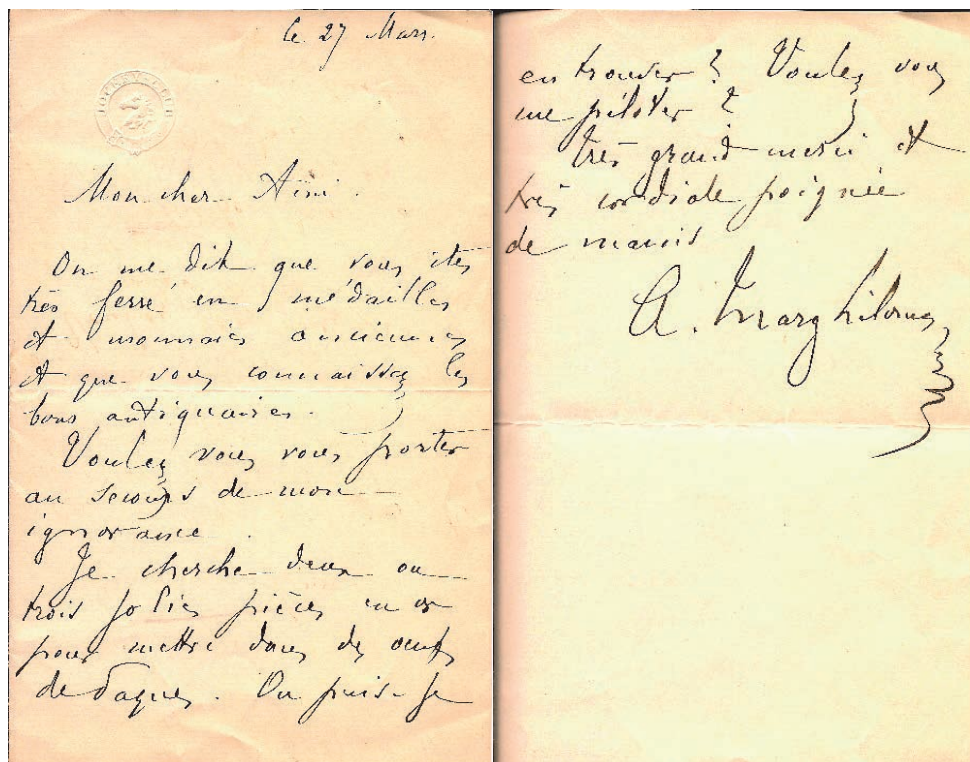 le 27 Mars.
JOCKEY-CLUB
Mon cher Aini.
On me dit que vous êtes
très ferré en médailles
et monnaies anciennes
et que vous connaissez les
bons antiquaires.
Voulez vous vous porter
au secours de mon
ignorance.
Je cherche deux ou
trois jolies pièces en or
pour mettre dans des oeufs
de Pâques. Ou puis-je
en trouver ? Voulez vous
me piloter ?
Très grand merci et
très cordiale poignée
de mains
A. Marghiloman